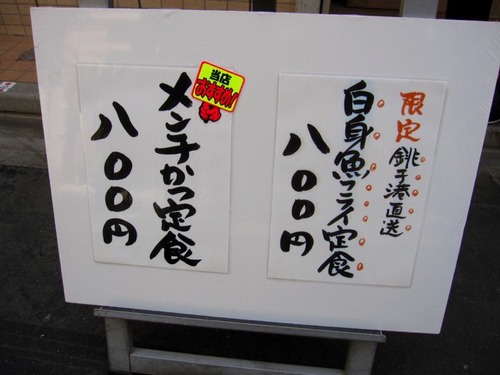 限定 銚子港直送
白身魚フライ定食
八〇〇円
当店
おすすめ!
メンチかつ定食
八〇〇円